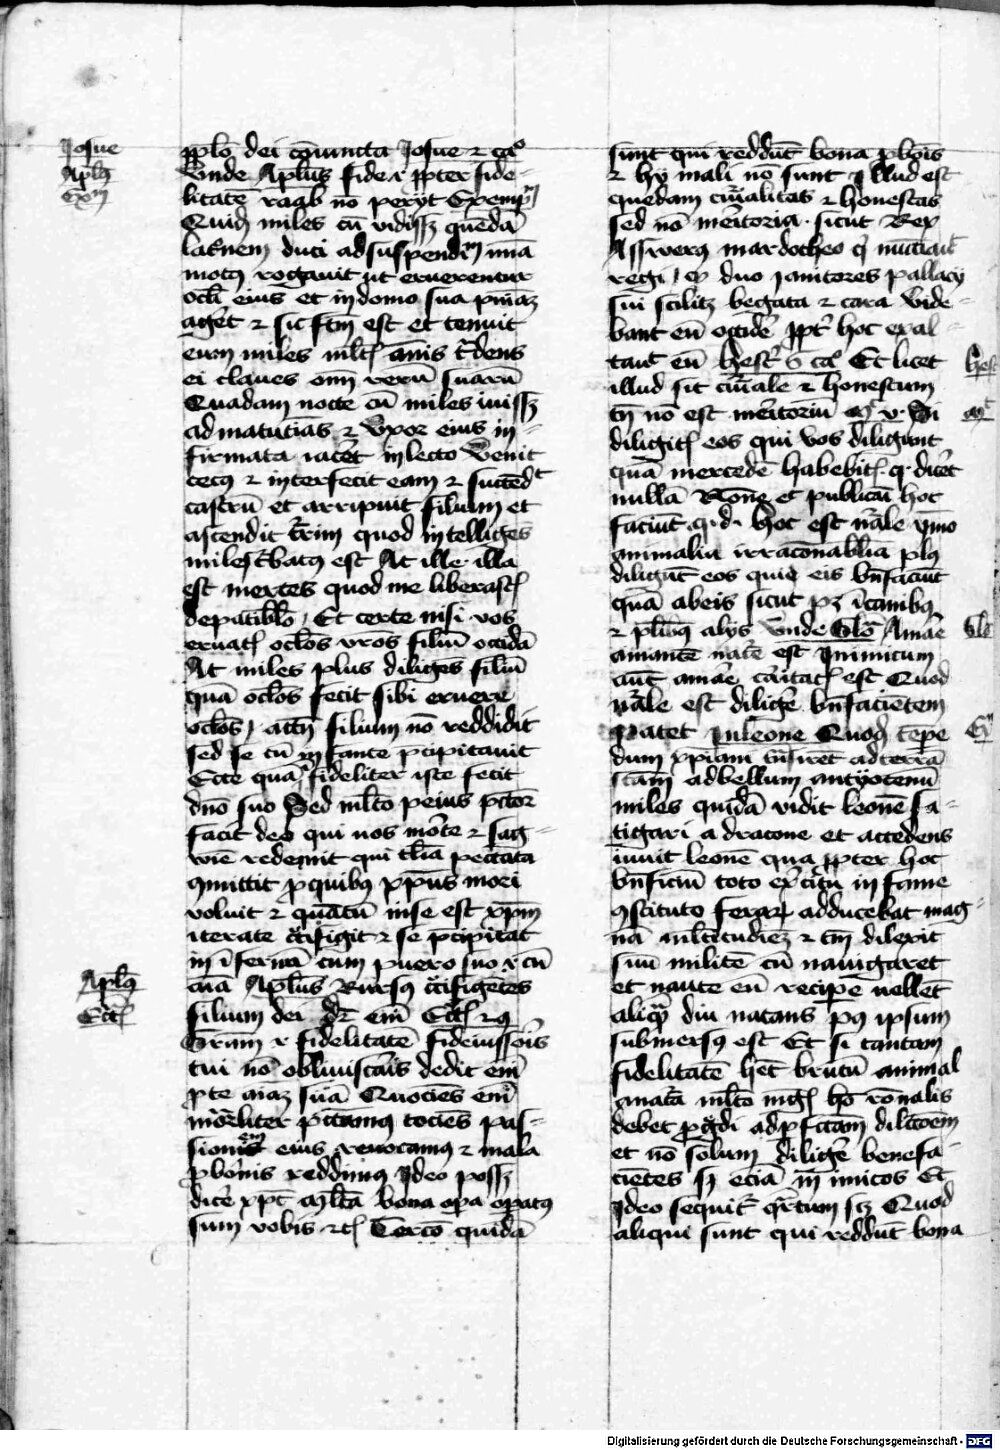 Josue
Aplus
Exm
pplo dei coniuncta Josue 2 ca°
Unde Aplus fide r ppter fide-
litatē raab nō perijt Exemp
Quidē miles cū vidiss quendā
latnem duci ad suspendm una
motus rogavit ut eruerentur
ocli eius et in domo sua pniaz
agēt 2 sic ftm est et tenuit
eum miles mlt annis credens
ei claves omī rerū suarū
Quadam nocte cū miles iuiss
ad matutinas 2 Uxor eius in-
firmata iacēt in lecto Venit
cecus 2 interfecit eam 2 succedt
castrū et arripuit filium et
ascendit turrim quod intelligens
miles turbatus est At ille illa
est merces quod me liberasti
de patiblo Et certe nisi vos
eruatis oclos vros filiū occidā
At miles plus diliges filiū
quā oclos fecit sibi eruere
oclos / attn filium nō reddidit
sed se cū infante pcipitavit
Ecce quā fideliter iste fecit
dno suo Sed mlto peius pctor
facit deo qui nos morte 2 sag-
wie redemit qui tlia peccata
qmittit p quibus xpus mori
voluit 2 quātū in se est xpm
iterate crucifigit 2 se pcipitat
in infernā cum puero suo r cū
Aplus
cuā Aplus Rursus crucifigētes
Ecct
filium dei dr enī Ecct 29
Gram r fidelitatē fideiussoris
tui nō obliviscais dedit enī
pte aiaz suā Quociens enī
mortliter pctamus tociens pas-
sionis eius renocamus 2 mala
p bonis reddimus Ideo poss
dicē xpc Mlta bona opa opatus
sum vobis etc Tercō quidā
sunt qui reddūt bona p bois
2 hy mali nō sunt Illud est
quedam curialitas 2 honestas
sed nō meritoria sicut Rex
Asswerus mardocheo q nunciavit
regi / q duo ianitores pallacy
sui scilicz begata 2 cara Vide-
bant eū occidē ppt hoc exal-
tavt eū Hest 6 ca° Et licet
Hest
illud sit curiale 2 honestum
tn nō est meritoriū m v Si
mt
diligitis eos qui vos diligunt
quā mercedē habebitis q. dicet
nullā Rone et publicani hoc
faciunt q.d. hoc est nrale ymo
animalia irraconablia plus
diligūt eos quie eis bnfaciūt
quā abeis sicut pz in canibus
2 plibus alijs Unde Glo Amare
Glo
amantē nate est Inimicum
aut amare caritatis est Quod
nrale est diligē bnfacientem
patet in leone Quod tepe
Ex
dum xpiani transiret ad terrā
scam ad bellum antyocenū
miles quidā vidit leonē fa-
tigari a dracone et accedens
iuvit leonē qua ppter hoc
bnficiū toto exercitu in fame
qstituto feraz adducebat mag-
nā multitudiez 2 tm dilexit
suū militē cū navigaret
et naute eū recipē nollet
aliqz diu natans pq ipsum
submersus est Et si tantam
fidelitatē het brutū animal
mlto mgis ho ronalis
debet pgdi ad pfctam dilctoem
et nō solum diligē benefa-
cientes sz eciā inimicos Et
Ideo sequit qrtum scz Quod
aliqui sunt qui reddūt bona
Digitalisierung gefördert durch die Deutsche Forschungsgemeinschaft - DFG